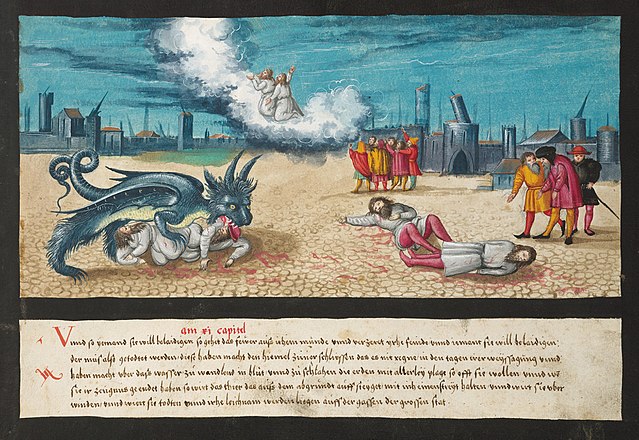 am xi capitel
Vnnd so yemand sie will belaidigen so gehet das feüwr auß ihrem münde vnnd verzert yrhe feinde vnnd so iemant sie will belaidigen
der müs also getodtet werden diese haben macht den hiemel zünerschliessen das es nie regne in den tagen irer weyssagung vnnd
haben macht vber dasß wasser zü wandlend in blüt vnnd zü schlahen die erden mit allerley plage so offt sie wollen vnnd wen
sie ir zeugnus geendet haben so wirt das thier das auß dem abgründt auff steyget mit inh einen streyt halten vnnd wirt sie vber
winden vnnd wiert sie todten vnnd yrhe leichnam werden liegen auff der gassen der grossen stat